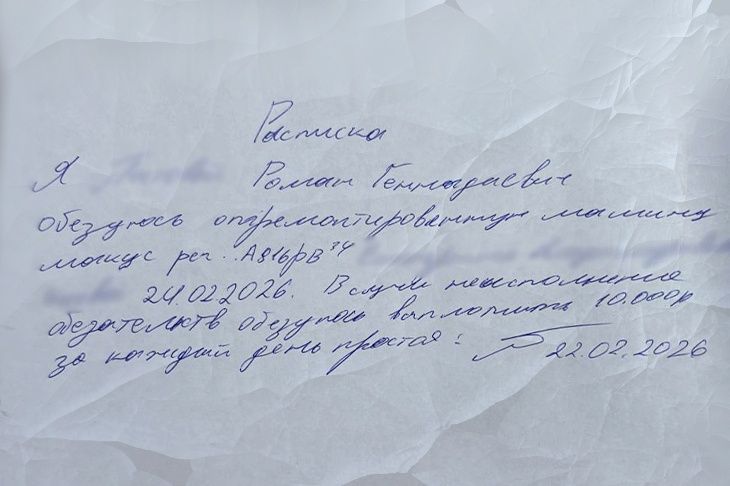 Расписка
Я Роман Геннадиевич
обезуюсь отремонтированную машину
рег. А816рв 34
24.02.2026. В случии неисполнения
обезательств обезуюсь выплотить 10.000р
за каждый день простоя:
22.02.2026